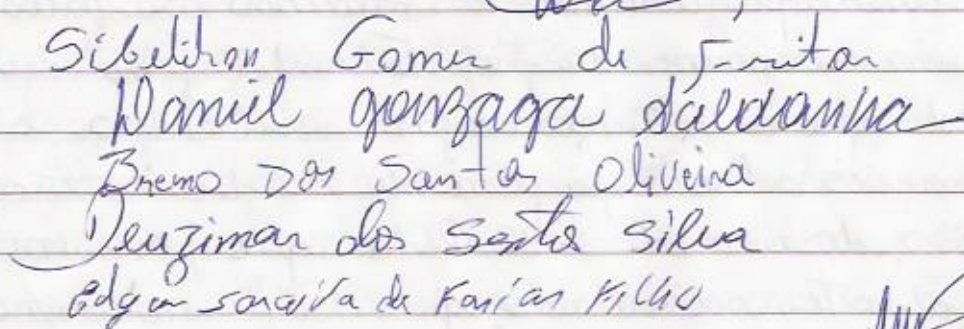 Gomes de Freitas
Daniel gonzaga Saldanha
Breno Dos Santos Oliveira
Deuzimar dos Santos Silva
Edgar saraiva de Farias Filho